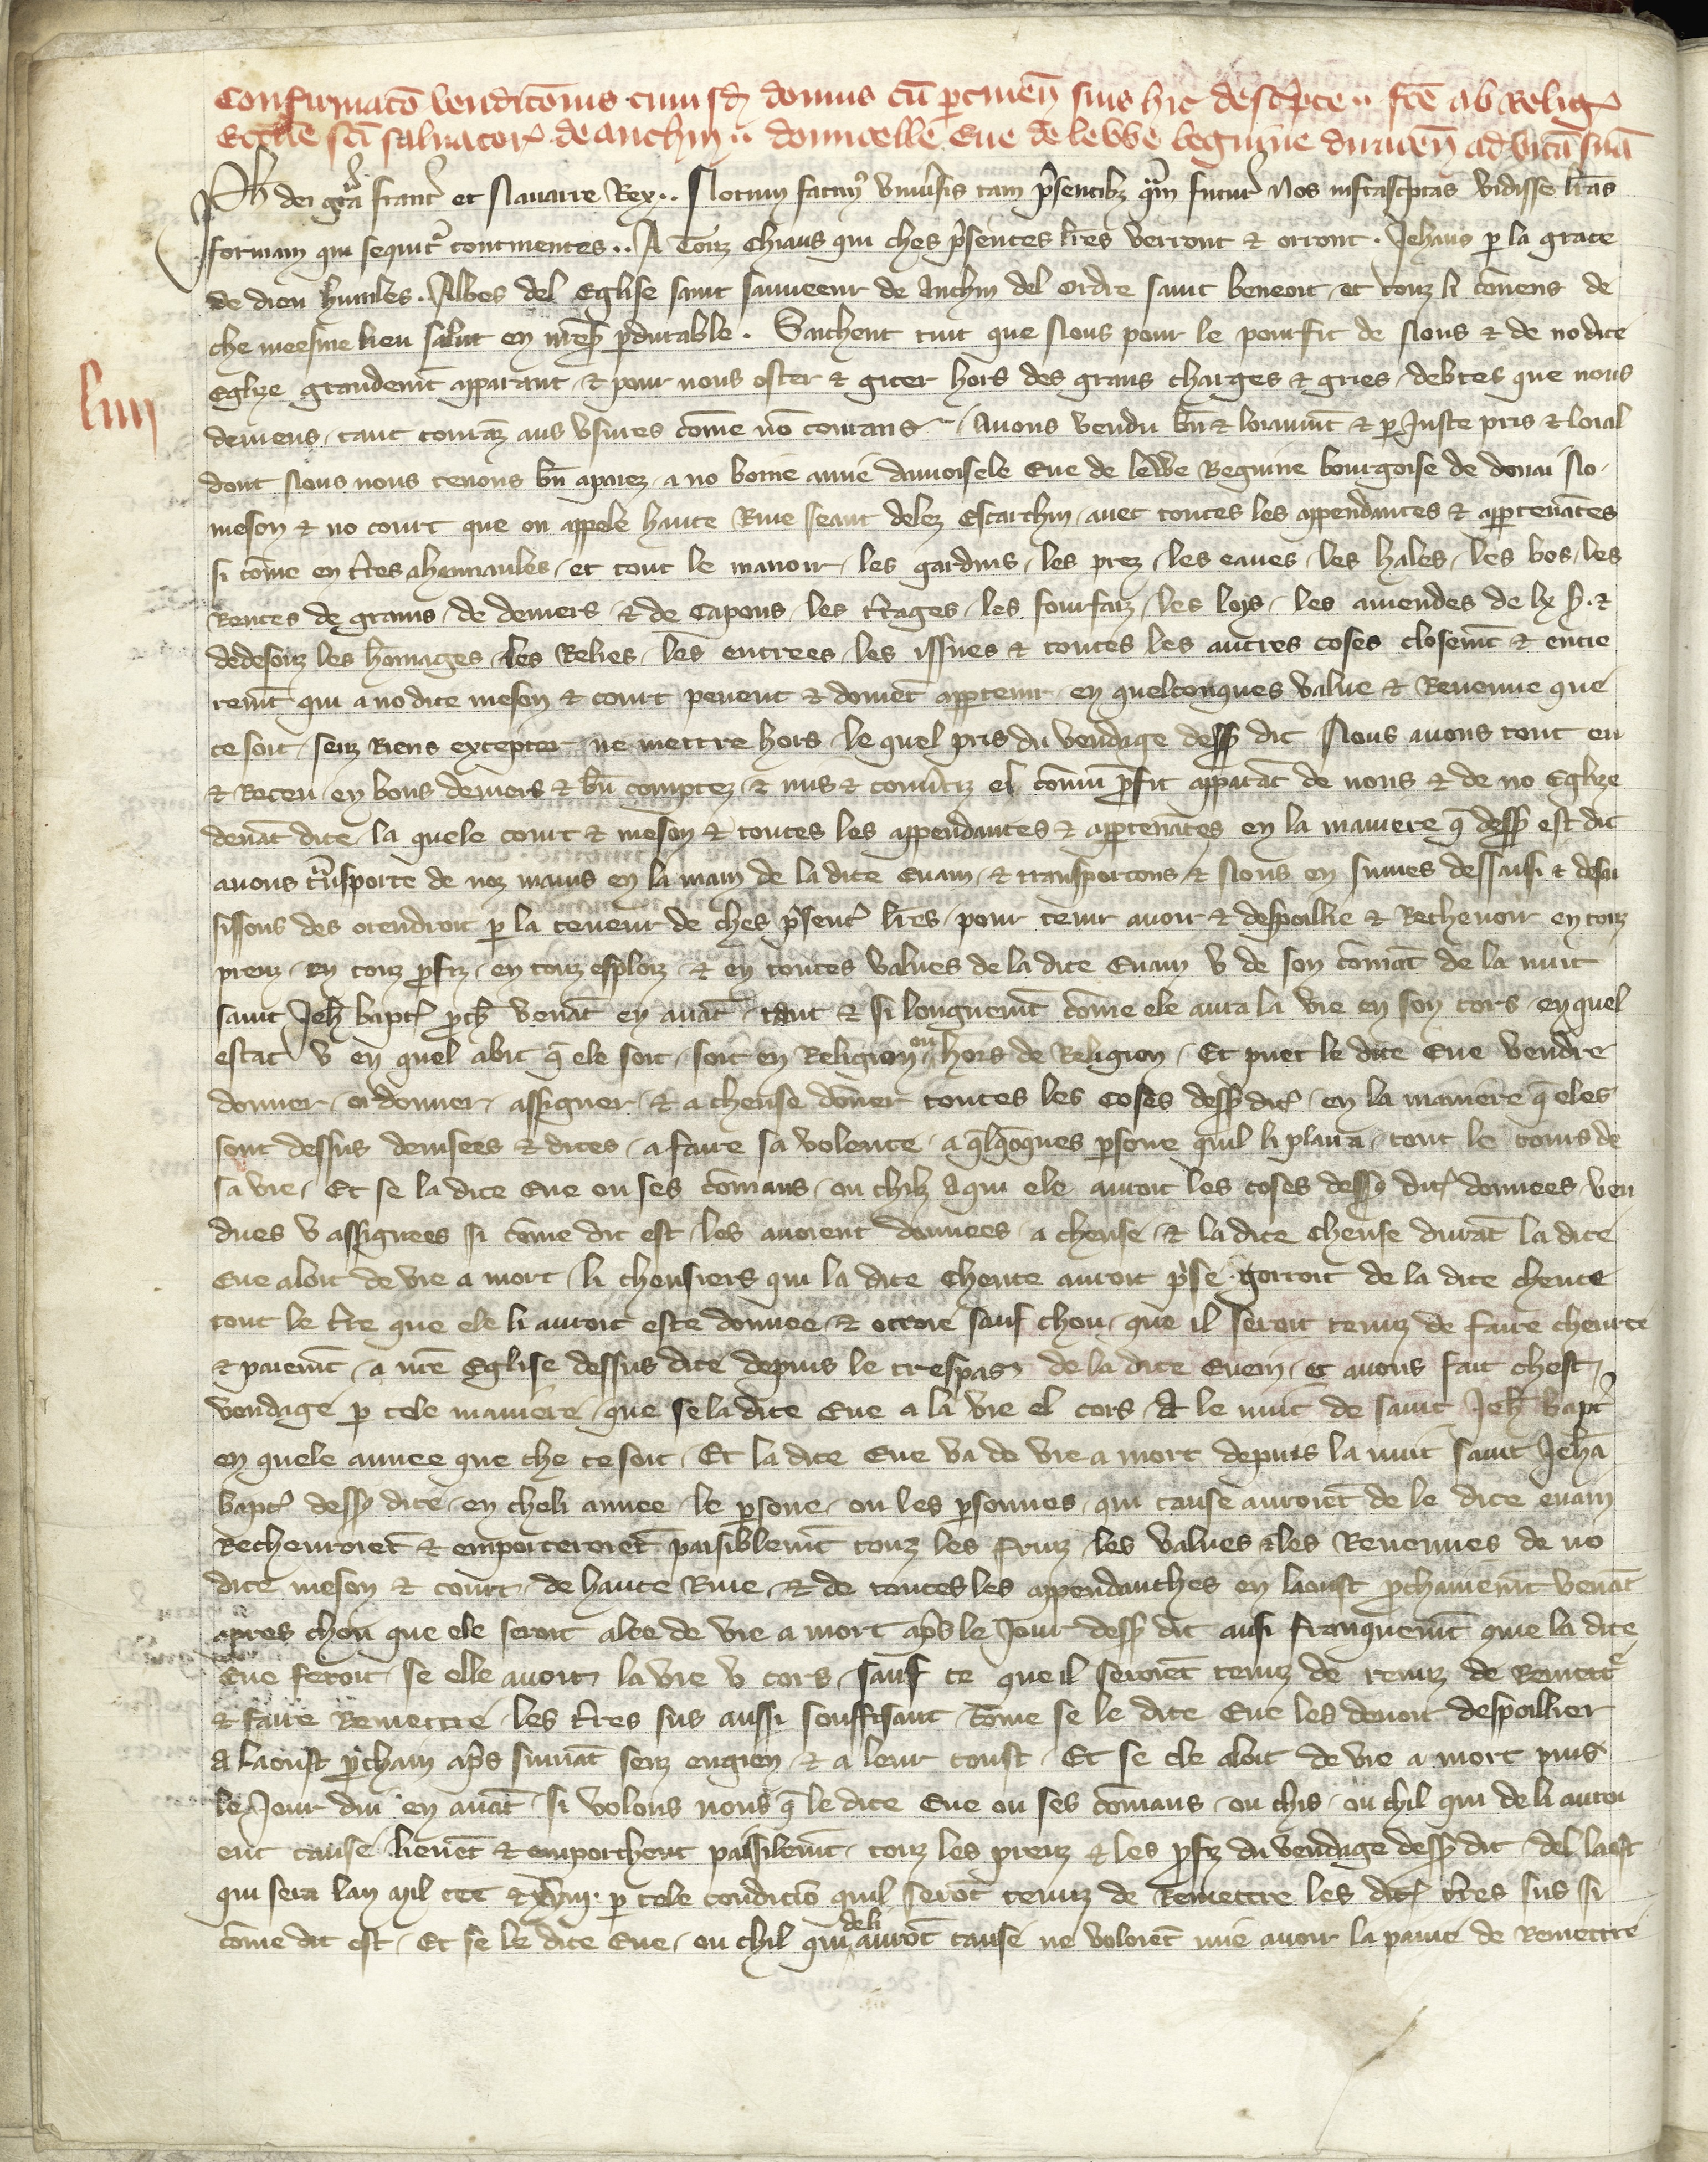 Confirmatō venditōnis cuiusd̄ domus cū ꝑtineñ suis hic desc̃pte .. fc̄e ab Relig̃
Eccl̃ie sc̄i saluator̃ de anchin .. domicelle Eue de lewe beguine duaceñ ad vitā suā
Ph̄ dei gr̃a franc̃ et Nauarre Rex .. Notum facimꝰ vniu̾sis tam p̃sentibꝫ q̃m futur̃ Nos infrasc̃ptas vidisse l̃ras
formam que sequit̃ continentes .. A Touz chiaus qui ches p̃sentes l̃res verront ⁊ orront . Jehans ꝑ la grace
de dieu humiles . Abbes del Eglise saint sauueeur de Anchin del ordre saint beneoit et touz li couens de
che meesme lieu salut en nr̃e s̃ ꝑdurable . Sachent tuit que Nous pour le pourfit de Nous ⁊ de no dite
Eglize grandemt̄ apparant ⁊ pour nous oster ⁊ giter hors des grans charges ⁊ gries debtes que nous
deuiens tant courāz aus vsures cōme nō courans / Auons vendu bn̄ ⁊ loiaumt̄ ⁊ ꝑ Juste pris ⁊ loial
dont Nous nous tenons bn̄ apaiez a no bonne amie damoisele Eue de lewe Beguine bourgoise de douai No
meson ⁊ no court que on appele haute Riue seant delez Escarchin auec toutes les appendances ⁊ appꝑtenāces
si cōme en t̃res ahennaules et tout le manoir les gardins les prez les eaues les hales les bos les
Rentes de grains de deniers ⁊ de Capons les t̃rages les fourfaiz les loys les amendes de lx s̃. ⁊
dedesouz les hōmages les Relies les entrees les issues ⁊ toutes les autres coses closemt̄ ⁊ entie
remt̄ qui a no dite meson ⁊ court peuent ⁊ doiuēt appꝑtenir en quelconques value ⁊ Reuenue que
ce soit senz Riens excepter ne mettre hors le quel pris du vendage dessꝰ dit Nous auons tout eu
⁊ Receu en bons deniers ⁊ bn̄ comptez ⁊ mis ⁊ conu̾tiz el cōmū p̃fit apparāt de nous ⁊ de no Eglize
deuāt dite la quele court ⁊ meson ⁊ toutes les appendantes ⁊ appꝑtenāces en la maniere q̄ dessꝰ est dit
auons t̃nsporte de noz mains en la main de la dite Euain ⁊ transportons ⁊ Nous en sumes dessaisi ⁊ desai
sissons des orendroit ꝑ la teneur de ches p̃sent̃ l̃res pour tenir auoir ⁊ despoillie ⁊ Recheuoir en touz
preuz en touz p̃fiz en touz esploiz ⁊ en toutes values de la dite Euain v de son cōmāt de la nuit
saint Jeh̃ bapt̃ p̃ch̃ venāt en auāt tant ⁊ si longuemt̄ cōme ele aura la vie en son cors en quel
estat v en quel abit q̄ ele soit soit en Religion ou hors de Religion . Et puet le dite Eue vendre
donner ordonner assigner ⁊ a chense dōner toutes les coses dessꝰ dit̃ en la maniere q̄ eles
sont dessus deuisees ⁊ dites a faire sa volente a q̄lq̄ōques ꝑsone quil li plaira tout le cours de
sa vie . Et se la dite Eue ou ses cōmans ou chilz a qui ele auroit les coses dessꝰ dit̃ donnees ven
dues v assignees si cōme dit est les auoient donnees a chense ⁊ la dite chense durāt la dite
Eue aloit de vie a mort li chensiers qui la dite chense auroit p̃se gorroit de la dite chense
tout le t̃me que ele li auroit este donnee ⁊ otroie sauf chou que il seroit tenuz de faire cheurte
⁊ paiemt̄ a nr̃e Eglise dessus dite depuis le trespas de la dite Euein et auons fait chest
vendage ꝑ tele maniere que se la dite Eue a la vie el cors A le nuit de saint Jeh̃ bapt̃
en quele annee que che ce soit . Et la dite Eue va de vie a mort depuis la nuit saint Jehā
bapt̃ dessꝰ dite en cheli annee le ꝑsone ou les ꝑsonnes qui cause auroiēt de le dite euain
Recheuroiēt ⁊ emporteroiēt paisiblemt̄ touz les fruiz les values ⁊ les Reuenues de no
dite meson ⁊ court de haute Riue ⁊ de toutes les appendanches en laoust p̃chainemt̄ venāt
apres chou que ele seroit alee de vie a mort ap̃s le Jour dessꝰ dit ausi franquemt̄ que la dite
Eue feroit se elle auoit la vie v cors sauf ce que il seroiēt tenuz de tenuz de Remettr̃
⁊ faire Remettre les t̃res sus aussi souffisant cōme se le dite Eue les deuoit despoillier
A laoust p̃chain ap̃s siuuāt senz engien ⁊ a leur coust . Et se ele aloit de vie a mort puis
le Jour dui en auāt si volons nous q̄ le dite Eue ou ses cōmans ou chis ou chil qui de li auroi
ent cause lieuēt ⁊ emporchent paissiblemt̄ touz les preuz ⁊ les p̃fiz du vendage dessꝰ dit del laost
qui sera lan mil ccc ⁊ xviij. ꝑ tele condiciō quil serōt tenuz de Remettre les dit̃ t̃res sus si
cōme dit est . Et se le dite Eue ou chil qui deli aurōt cause ne voloiēt mie auoir la paine de Remettre